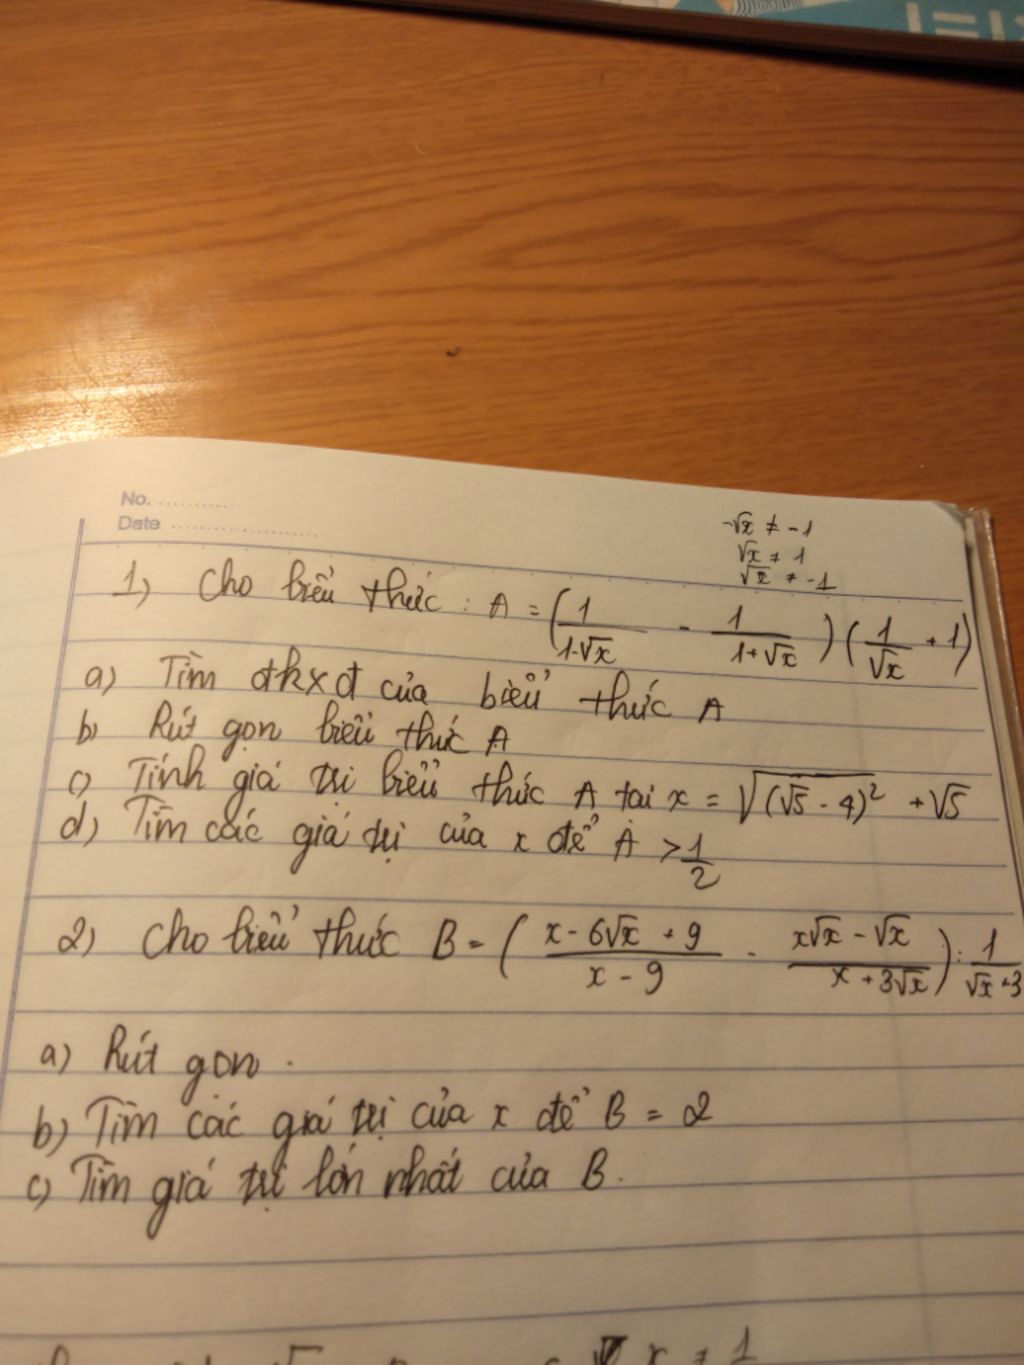 No. ..........
Date ....................
-√x ≠ -1
√x ≠ 1
√x ≠ -1
1) Cho biểu thức : A = (1/(1-√x) - 1/(1+√x)) (1/√x + 1)
a) Tìm đkxđ của biểu thức A
b) Rút gọn biểu thức A
c) Tính giá trị biểu thức A tại x = √((√5 - 4)²) + √5
d) Tìm các giá trị của x để A > 1/2
2) Cho biểu thức B = ((x - 6√x + 9)/(x - 9) - (x√x - √x)/(x + 3√x)) : 1/(√x + 3
a) Rút gọn .
b) Tìm các giá trị của x để B = 2
c) Tìm giá trị lớn nhất của B.
x ≠ 1